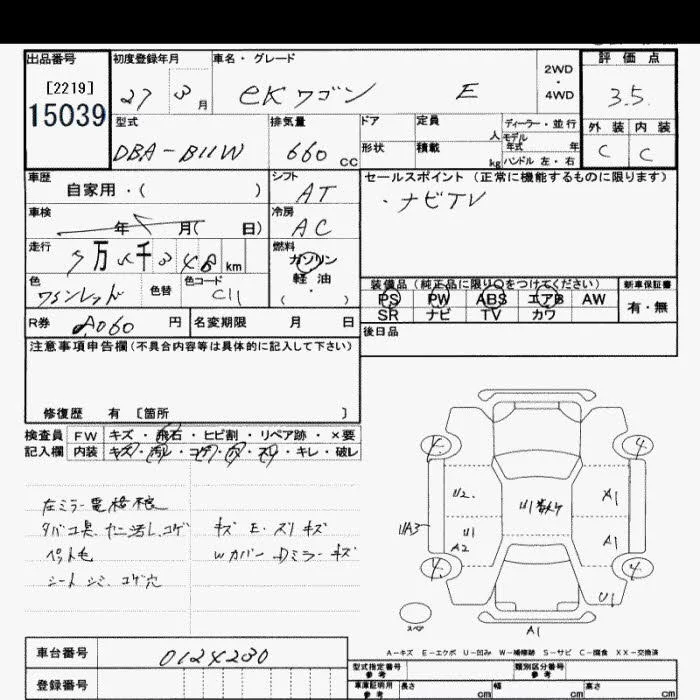 出品番号 初度登録年月 車名・グレード 2WD・4WD 評価点
[2219]
15039
27 3月 eKワゴン E 3.5
型式 排気量 ドア 定員 人 ディーラー・並行 外装 内装
モデル年式 年
DBA-B11W 660cc 形状 積載 kg ハンドル 左・右 C C
車歴 シフト セールスポイント(正常に機能するものに限ります)
自家用・( ) AT ・ナビTV
車検 年 月( 日) 冷房 AC
走行 万 千 km 燃料 ガソリン
軽油
・( )
色 ワインレッド 色替 色コード C11
装備品(純正品に限り○をつけてください) 新車保証書
PS PW ABS エアB AW 有・無
SR ナビ TV カワ
R券 円 名変期限 月 日 後日品
注意事項申告欄(不具合内容等は具体的に記入して下さい)
修復歴 有 [箇所 ]
検査員 FW キズ・飛石・ヒビ割・リペア跡・×要
記入欄 内装 キズ・汚レ・コゲ・穴・スリ・キレ・破レ
左ミラー電格
ペット毛 Wカバー Dミラーキズ
シートシミ、コゲ穴
4 4
U2 A1
UA3 U1 A1
A2
4 4
U1
スペア
A1
A-キズ E-エクボ U-凹み W-補修跡 S-サビ C-腐食 XX-交換済
車台番号 0124230
登録番号
型式指定番号 参考 類別区分番号 参考
車庫証明用 参考 長さ cm 幅 cm 高さ cm